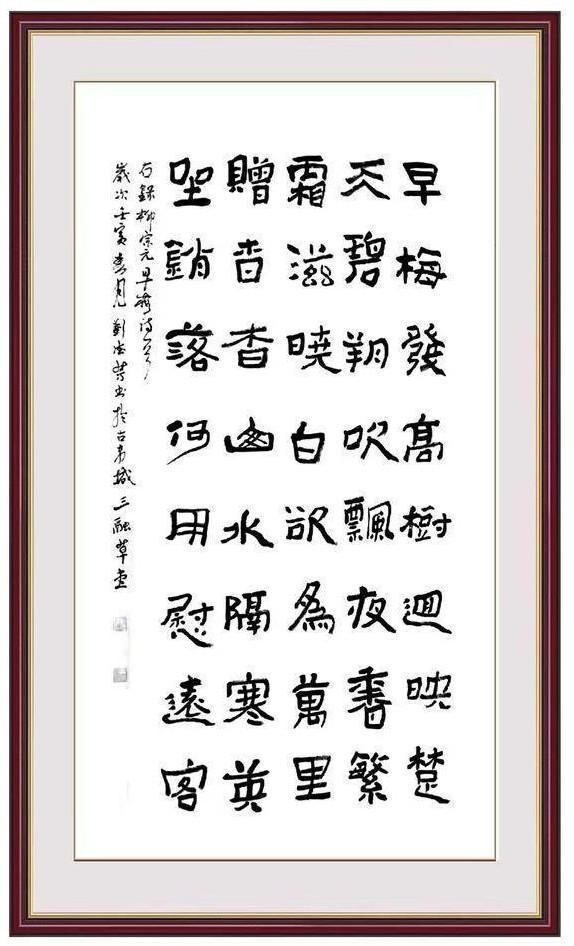 早梅發高樹迴映楚
天碧朔吹飄夜香繁
霜滋曉白欲為萬里
贈杳杳山水隔寒英
坐銷落何用慰遠客
右錄柳宗元早梅詩一首
歲次壬寅春月劉書於古韋城三融草堂